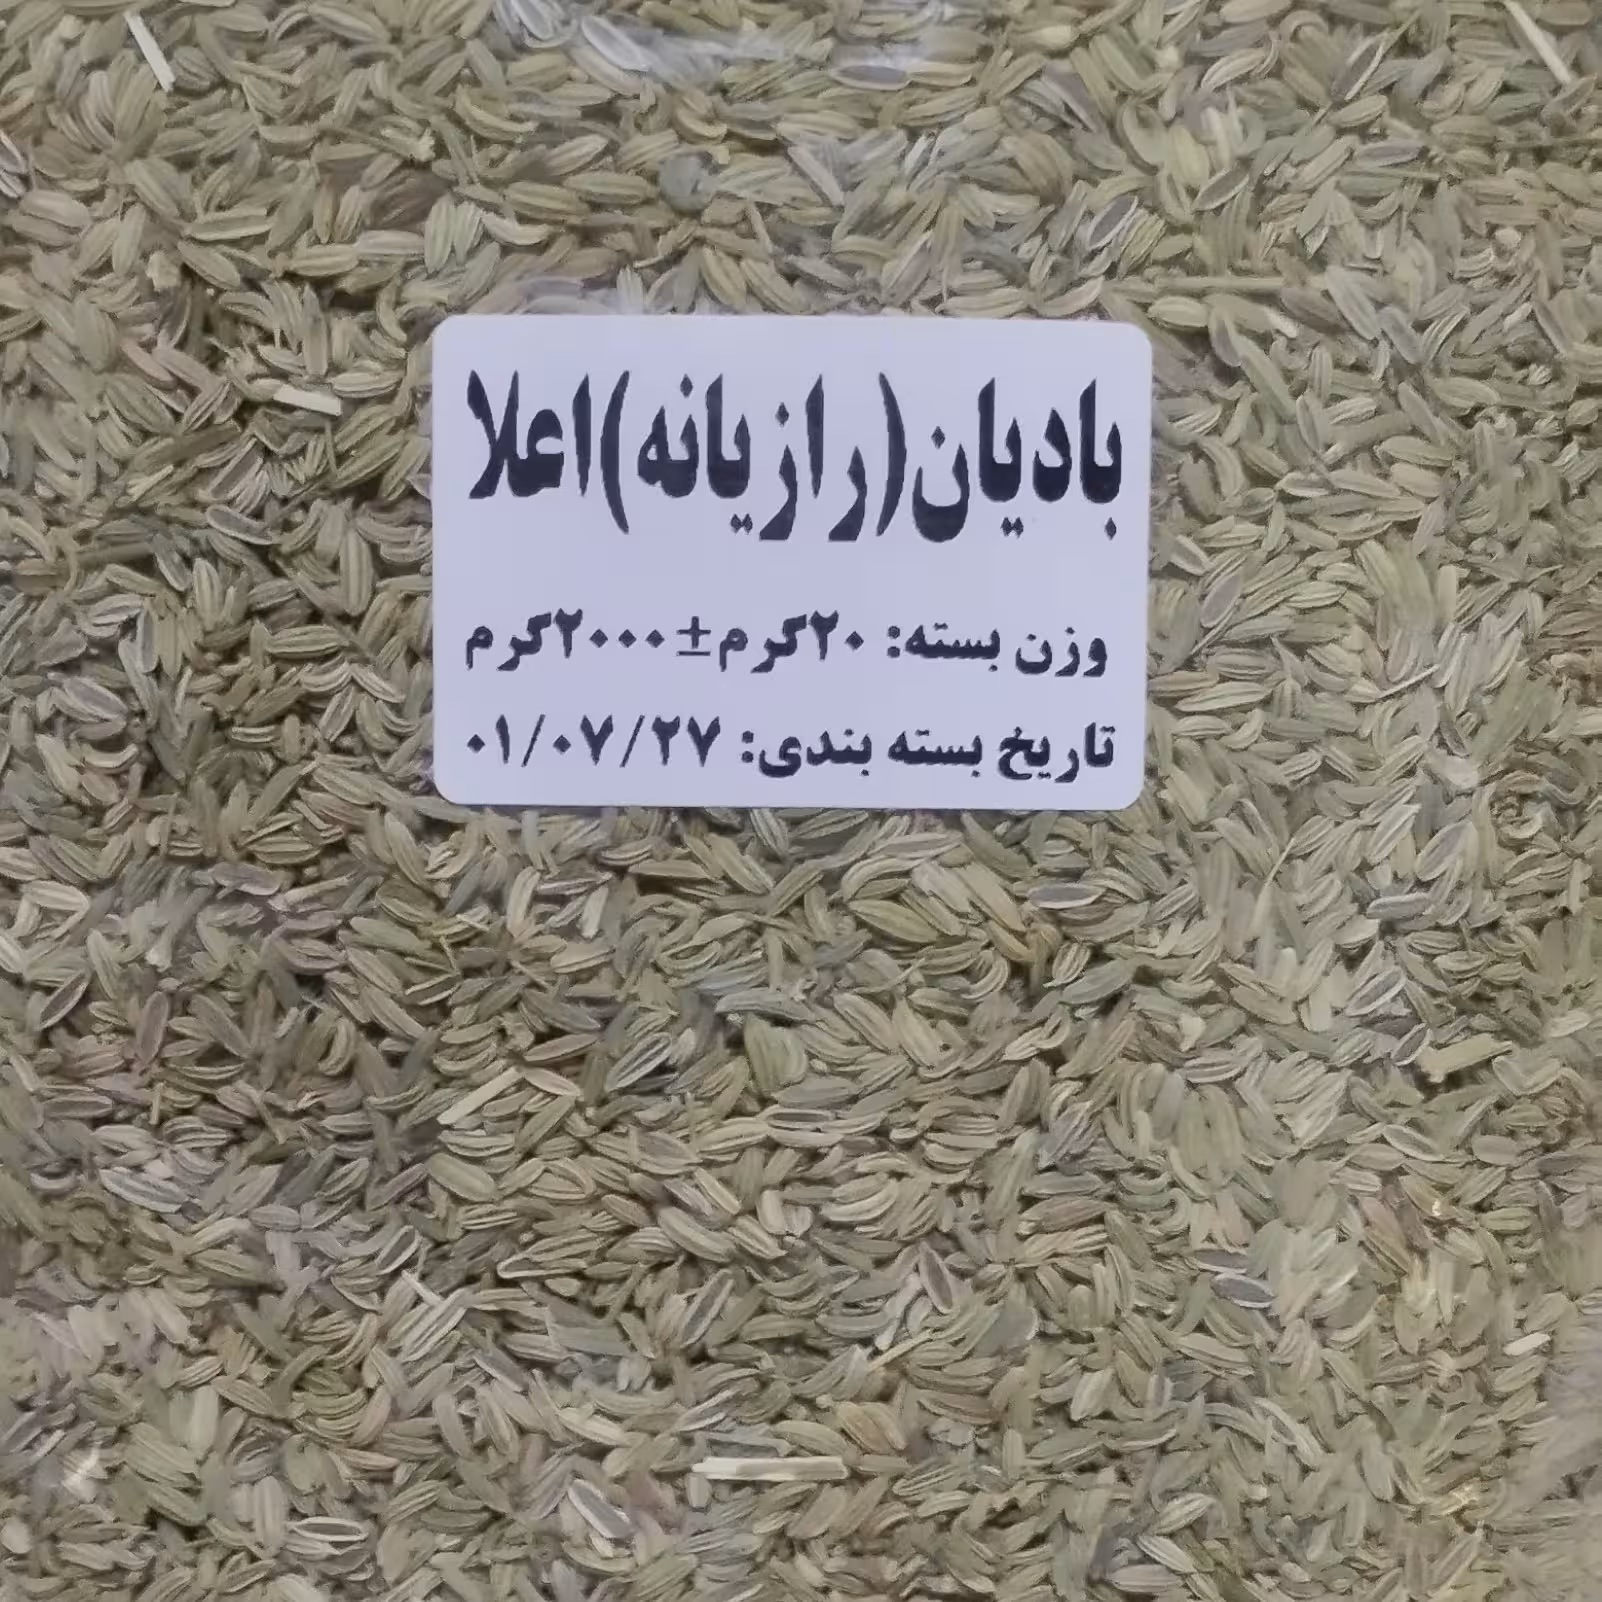 بادیان(رازیانه)اعلا
وزن بسته: ۲۰گرم±۲۰۰۰گرم
تاریخ بسته بندی: ۰۱/۰۷/۲۷